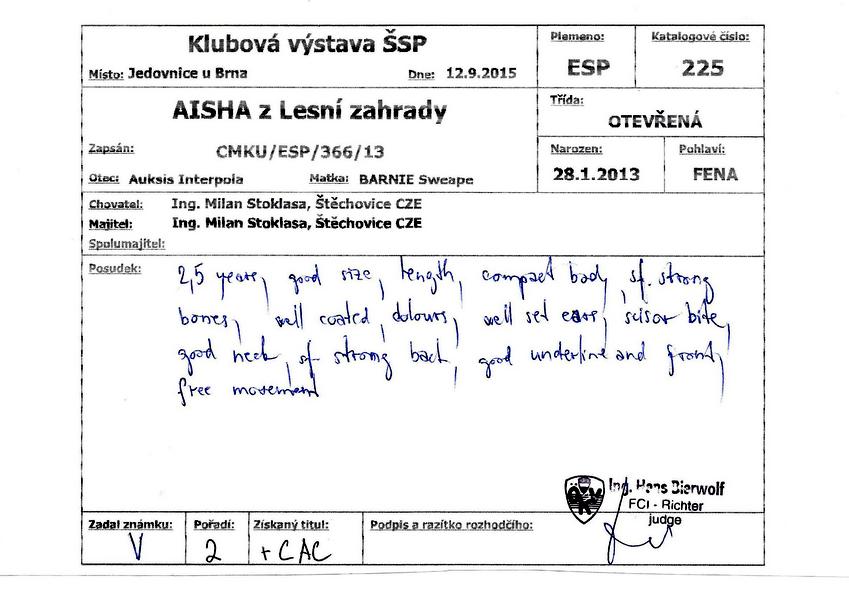 Klubová výstava ŠSP
Místo: Jedovnice u Brna Dne: 12.9.2015
Plemeno: ESP
Katalogové číslo: 225
AISHA z Lesní zahrady
Třída: OTEVŘENÁ
Zapsán: CMKU/ESP/366/13
Otec: Auksis Interpola Matka: BARNIE Sweape
Narozen: 28.1.2013
Pohlaví: FENA
Chovatel: Ing. Milan Stoklasa, Štěchovice CZE
Majitel: Ing. Milan Stoklasa, Štěchovice CZE
Spolumajitel:
Posudek: 2,5 years, good size, length, compact body, sf. strong
bones, well coated, colours, well set ears, scisor bite,
good neck, sf strong back, good underline and front,
free movement
ÖKV
Ing. Hans Bierwolf
FCI - Richter
judge
Zadal známku: V
Pořadí: 2
Získaný titul: + CAC
Podpis a razítko rozhodčího: